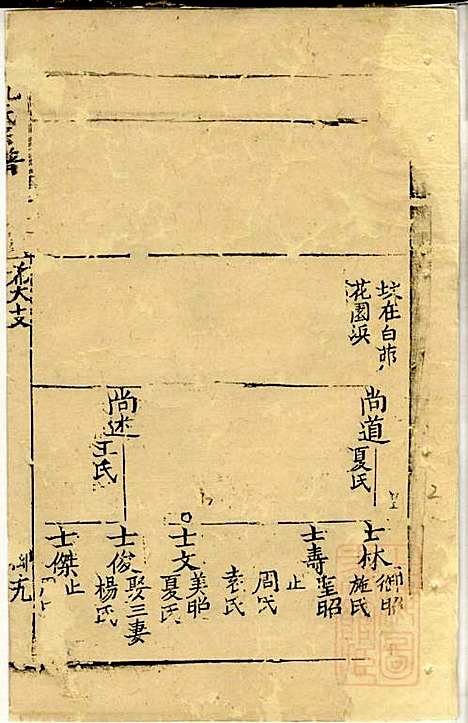 坟在白茆
花園浜
尚道
夏氏
尚述
王氏
士林
御昭
施氏
士壽
聖昭
止
周氏
袁氏
士文
美昭
夏氏
士俊
娶三妻
楊氏
士傑
止
氏宗譜
花大支
九
2